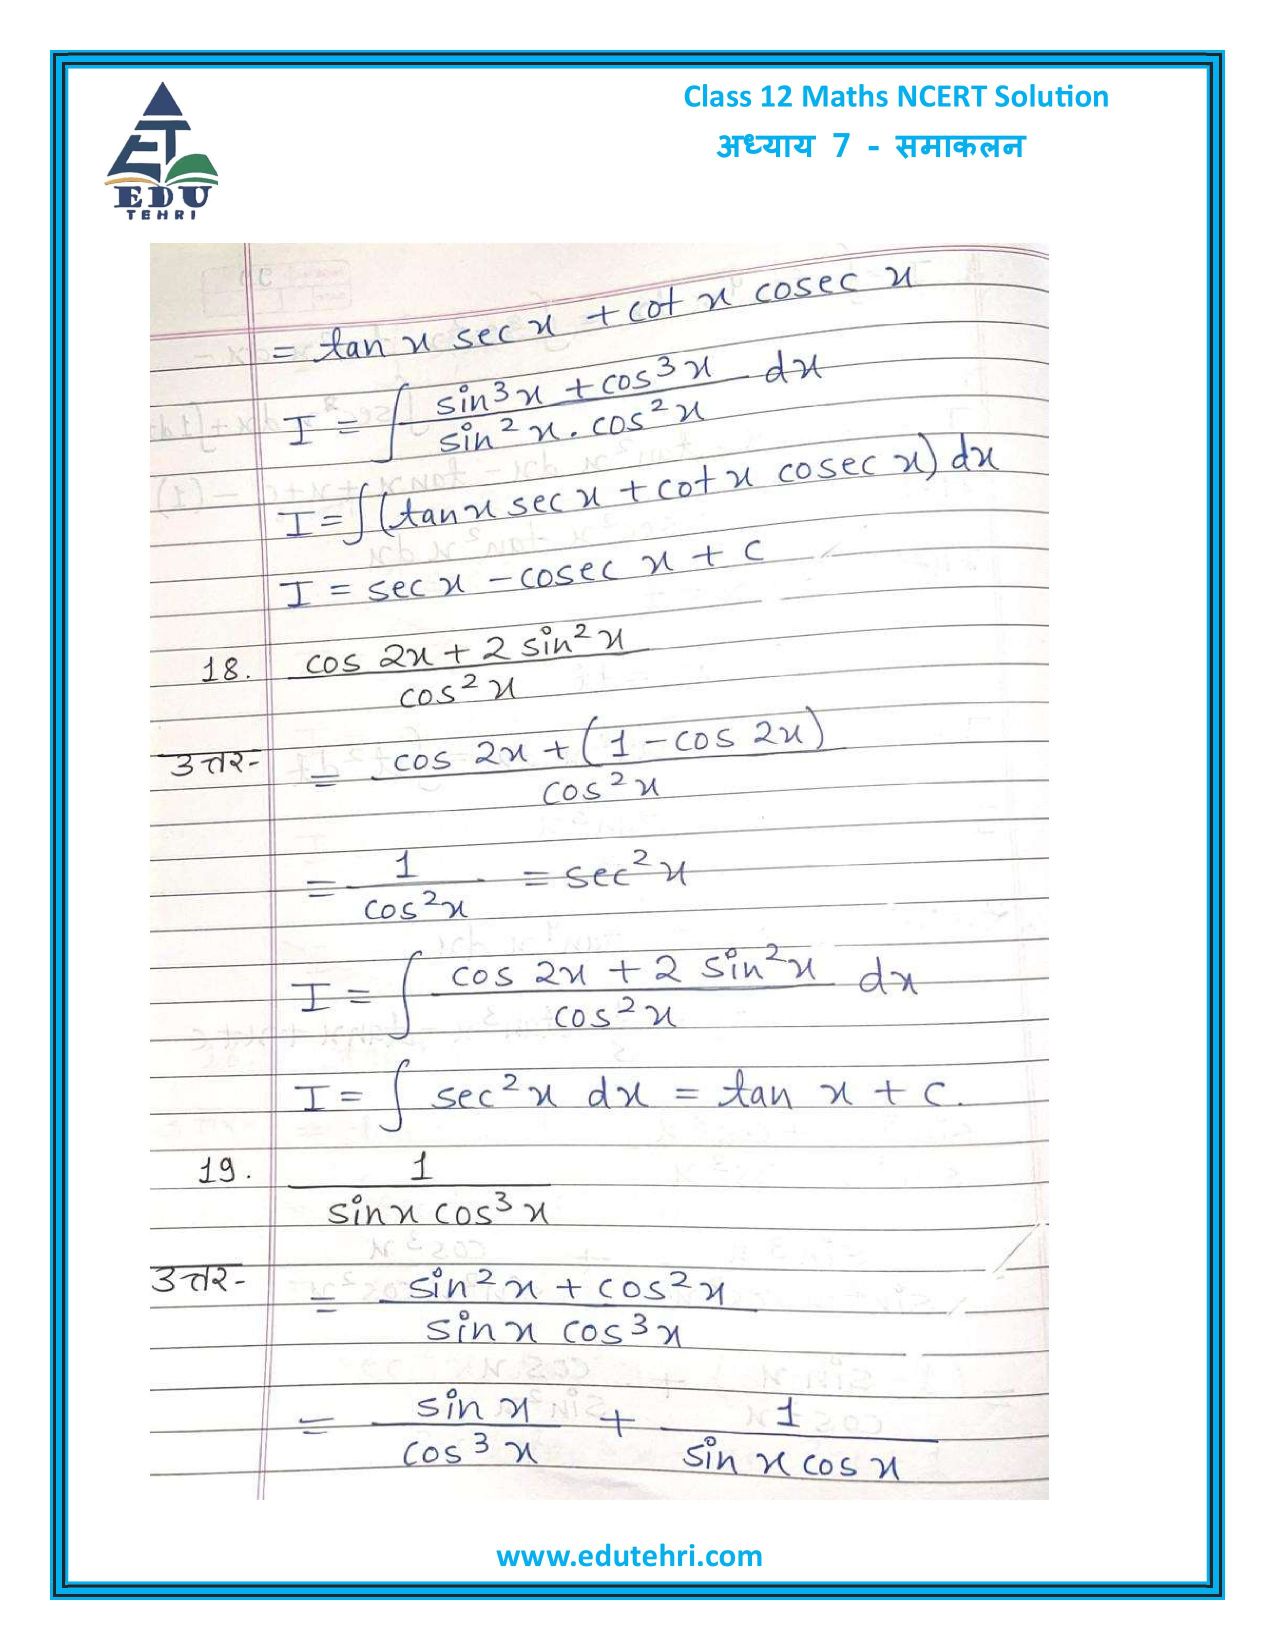 Class 12 Maths NCERT Solution
अध्याय 7 - समाकलन
ET
EDU
TEHRI
= tan x sec x + cot x cosec x
I = ∫ (sin³x + cos³x)/(sin²x . cos²x) dx
I = ∫(tan x sec x + cot x cosec x) dx
I = sec x - cosec x + c
18. (cos 2x + 2 sin²x)/(cos²x)
उत्तर- = (cos 2x + (1 - cos 2x))/(cos²x)
= 1/(cos²x) = sec²x
I = ∫ (cos 2x + 2 sin²x)/(cos²x) dx
I = ∫ sec²x dx = tan x + c.
19. 1/(sin x cos³x)
उत्तर- = (sin²x + cos²x)/(sin x cos³x)
= (sin x)/(cos³x) + 1/(sin x cos x)
www.edutehri.com